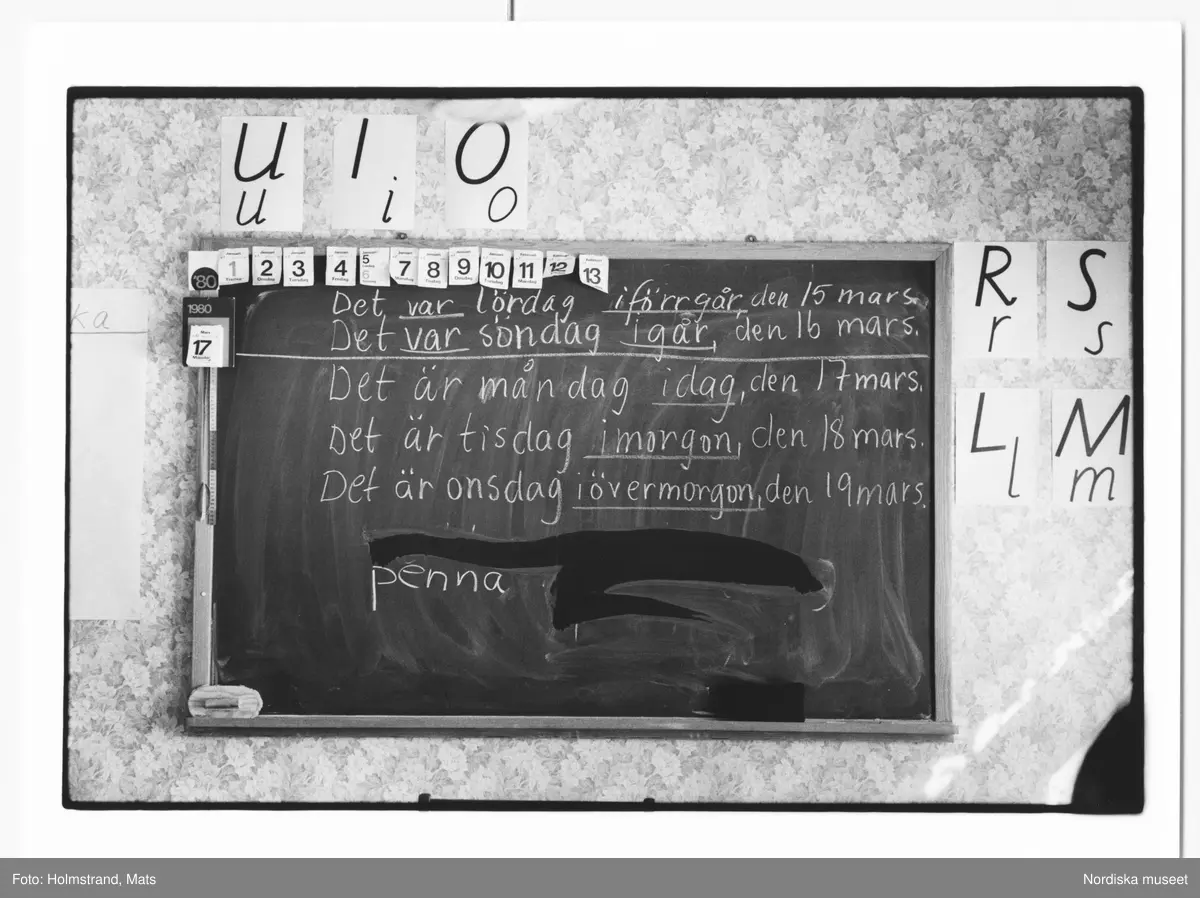 U I O
u i o
'80 1 2 3 4 5 6 7 8 9 10 11 12 13
R S
r s
ka
1980
17
Det var lördag iförrgår, den 15 mars.
Det var söndag igår, den 16 mars.
Det är måndag idag, den 17 mars.
Det är tisdag imorgon, den 18 mars.
Det är onsdag iövermorgon, den 19 mars.
L M
l m
penna
Foto: Holmstrand, Mats
Nordiska museet